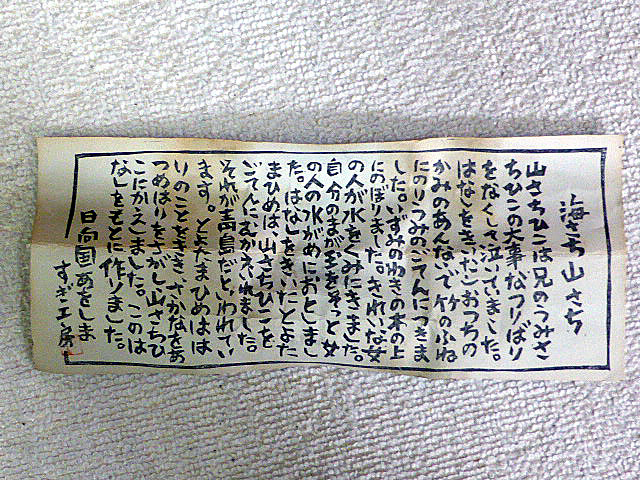 海さち山さち
山さちひこは兄のうみさ
ちひこの大事なつりばり
をなくして泣いていました。
はなしをきいたしおつちの
かみのあんないで竹のふね
にのりうみのごてんにつきま
した。いずみのわきの木の上
にのぼりました。きれいな女
の人が水をくみにきました。
自分のまが玉をそっと女
の人の水がめにおとしまし
た。はなしをきいたとよた
まひめは、山さちひこを
ごてんにむかえいれました。
それが青島だといわれてい
ます。とよたまひめはは
りのことをきき、さかなをあ
つめはりをさがし、山さちひ
こにかえしました。このは
なしをもとに作りました。
日向国あをしま
すぎ工房